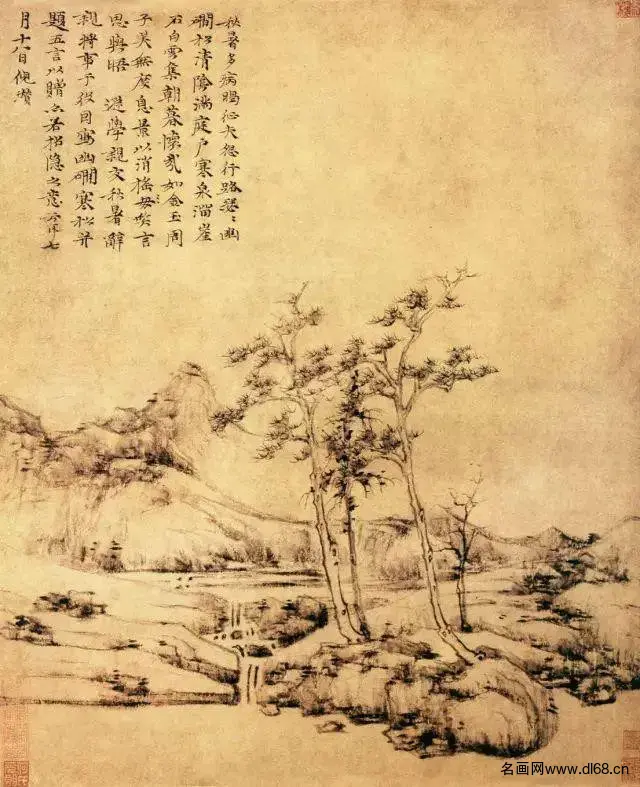 秋暑多病暍征夫怨行路瑟〻幽
磵松清陰滿庭戶寒泉溜崖
石白雲集朝暮懷哉如金玉周
子美無度息景以消搖笑言
思與晤 遜學親友秋暑辭
親將事于役因寫幽磵寒松并
題五言以贈亦若招隱之意七
月十八日倪瓚
名画网www.dl68.cn